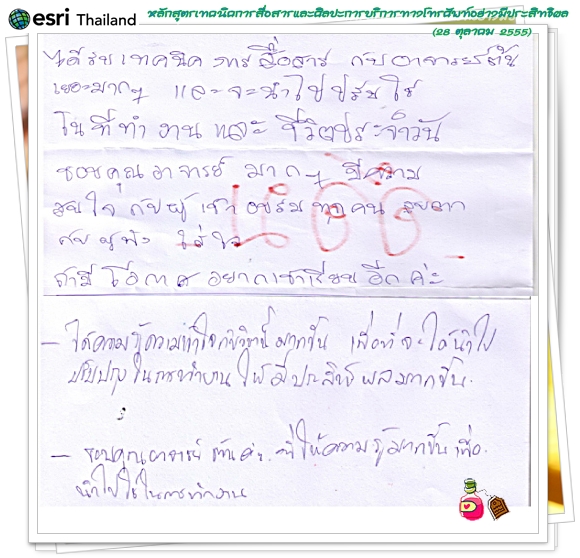 esri Thailand
หลักสูตรเทคนิคการสื่อสารและศิลปะการบริการทางโทรศัพท์อย่างมีประสิทธิผล
(26 ตุลาคม 2555)
ได้รับเทคนิคการสื่อสาร กับอาจารย์ต้น
เยอะมากๆ และจะนำไปปรับใช้
ในที่ทำงานและชีวิตประจำวัน
ขอบคุณอาจารย์มากๆ มีความ
สนใจกับผู้เข้าอบรมทุกคน
กับผู้ฟัง ใส่ใจ
ถ้ามีโอกาสอยากเข้าเรียนอีกค่ะ
- ได้ความรู้ความเข้าใจ มากขึ้น เพื่อที่จะได้นำไป
ปรับปรุงในการทำงานให้มีประสิทธิผลมากขึ้น.
- ขอบคุณอาจารย์ต้นค่ะ. ที่ให้ความรู้มากขึ้นเพื่อ
นำไปใช้ในการทำงาน